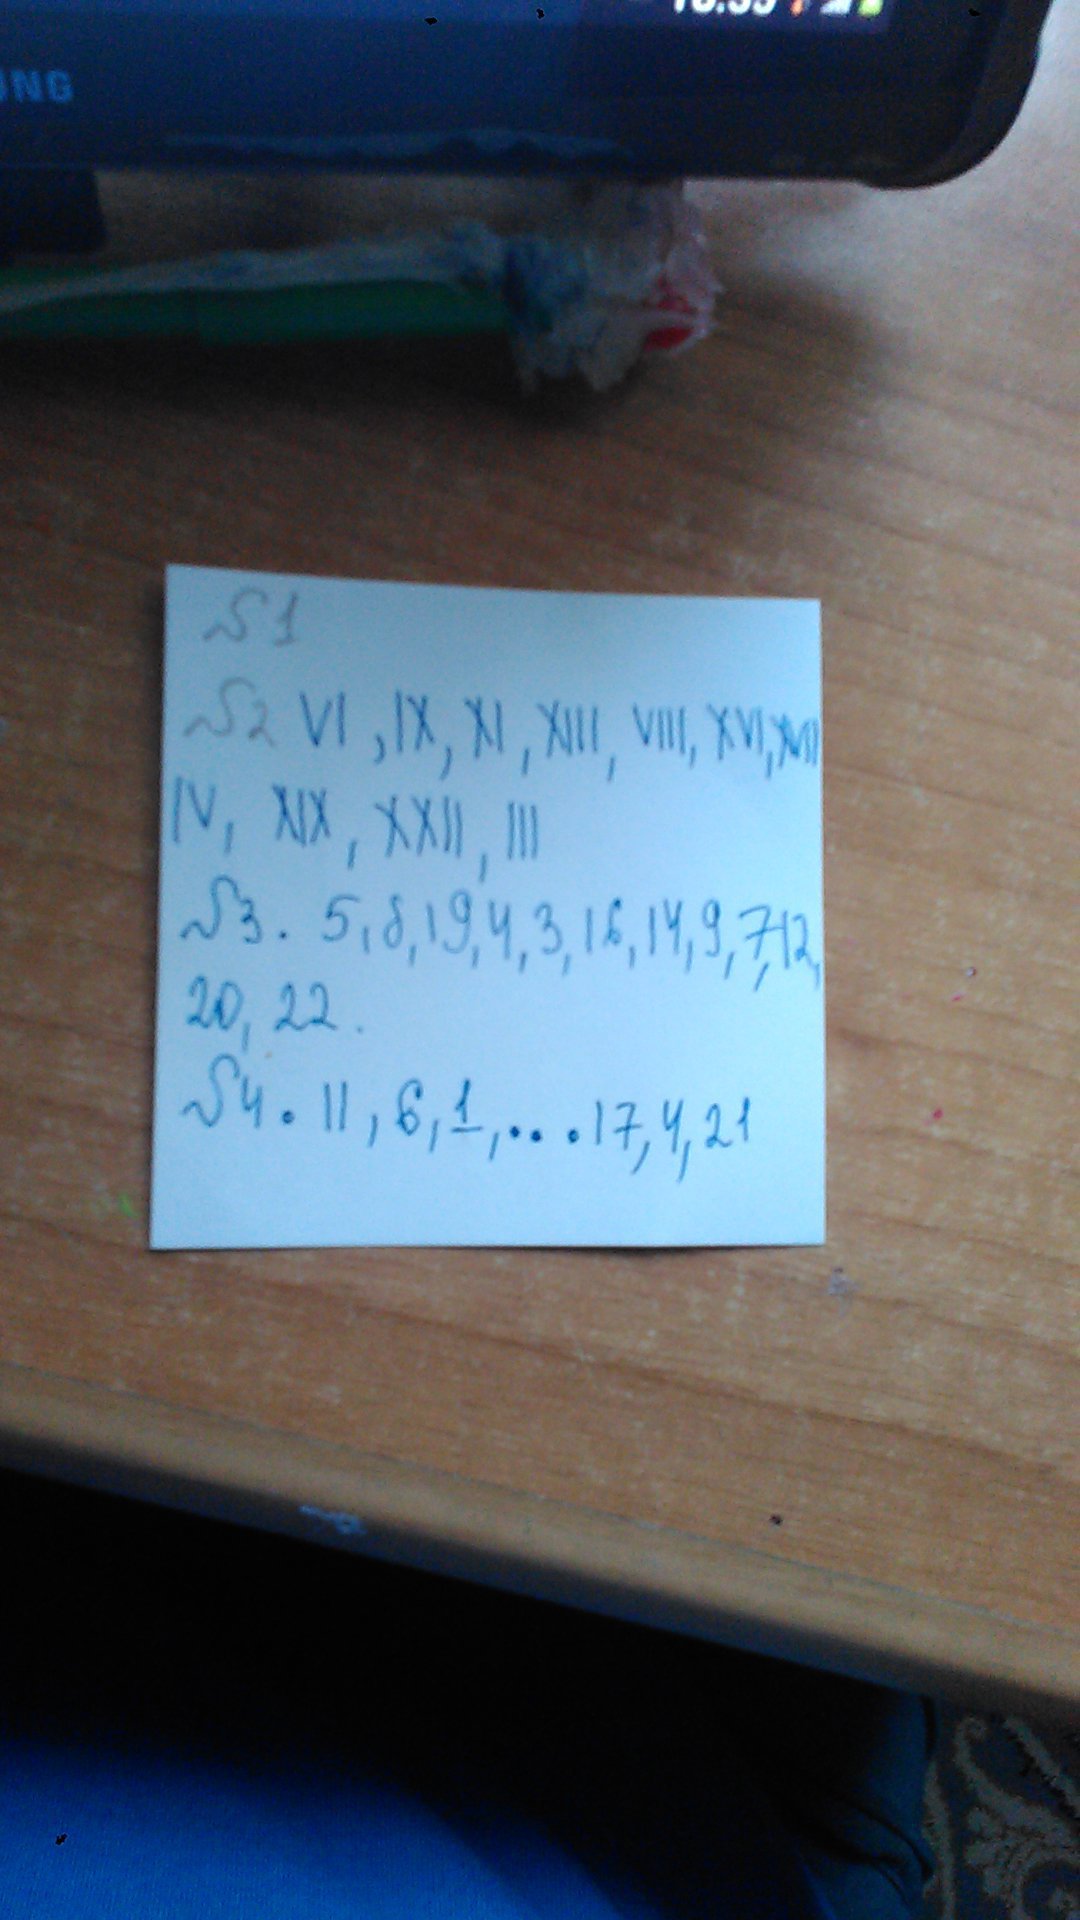 UNG
№1
№2 VI, IX, XI, XIII, VIII, XVI, XVII
IV, XIX, XXII, III
№3. 5, 8, 19, 4, 3, 16, 14, 9, 7, 12,
20, 22.
№4. 11, 6, 1, ... 17, 4, 21